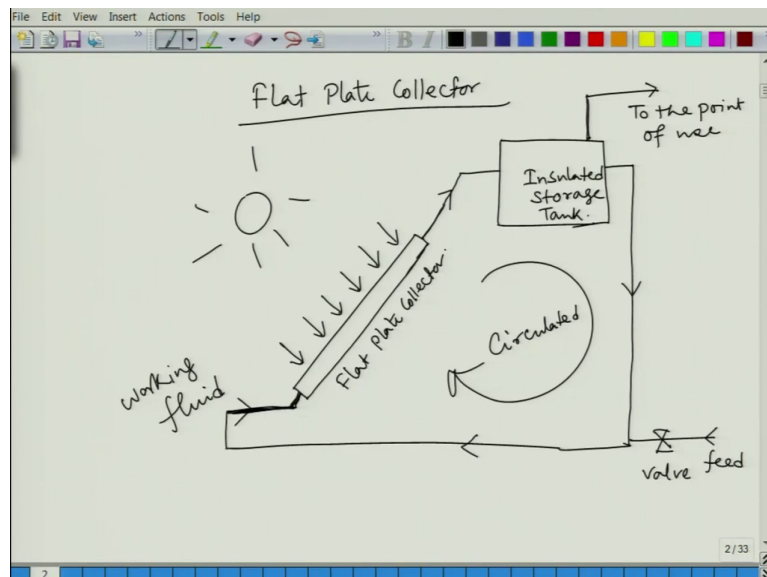 File Edit View Insert Actions Tools Help
B I
Flat Plate Collector
To the point
of use
Insulated
Storage
Tank.
Flat Plate Collector.
Circulated
working
fluid
valve
feed
2/33
2